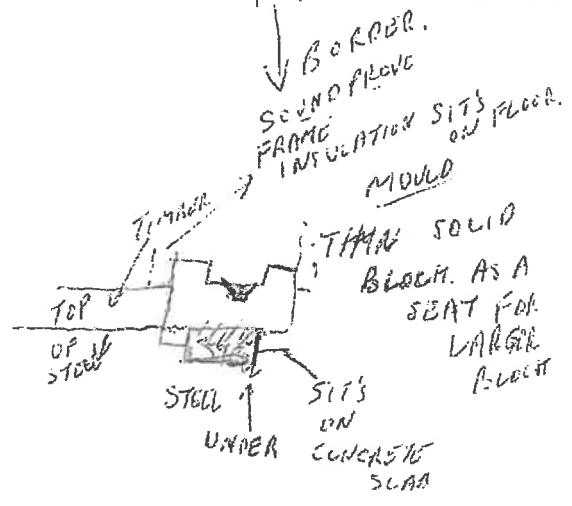 BORDER.
SOUND PROVE
FRAME
INSULATION SIT'S
ON FLOOR.
MOULD
TIMBER
THIN SOLID
BLOCK. AS A
SEAT FOR
LARGER
BLOCK
TOP
OF
STEEL
STEEL
UNDER
SIT'S
ON
CONCRETE
SLAB